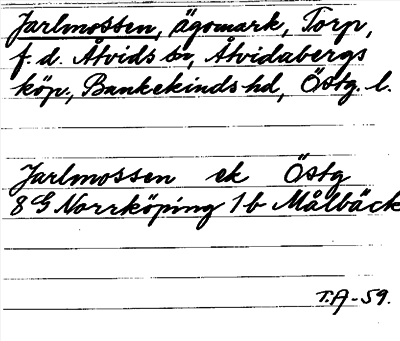 Jarlmossen, ägomark, Torp,
f. d. Åtvids sn, Åtvidabergs
köp., Bankekinds hd, Östg. l.
Jarlmossen ek Östg
8G Norrköping 1b Målbäck
T.A-59.